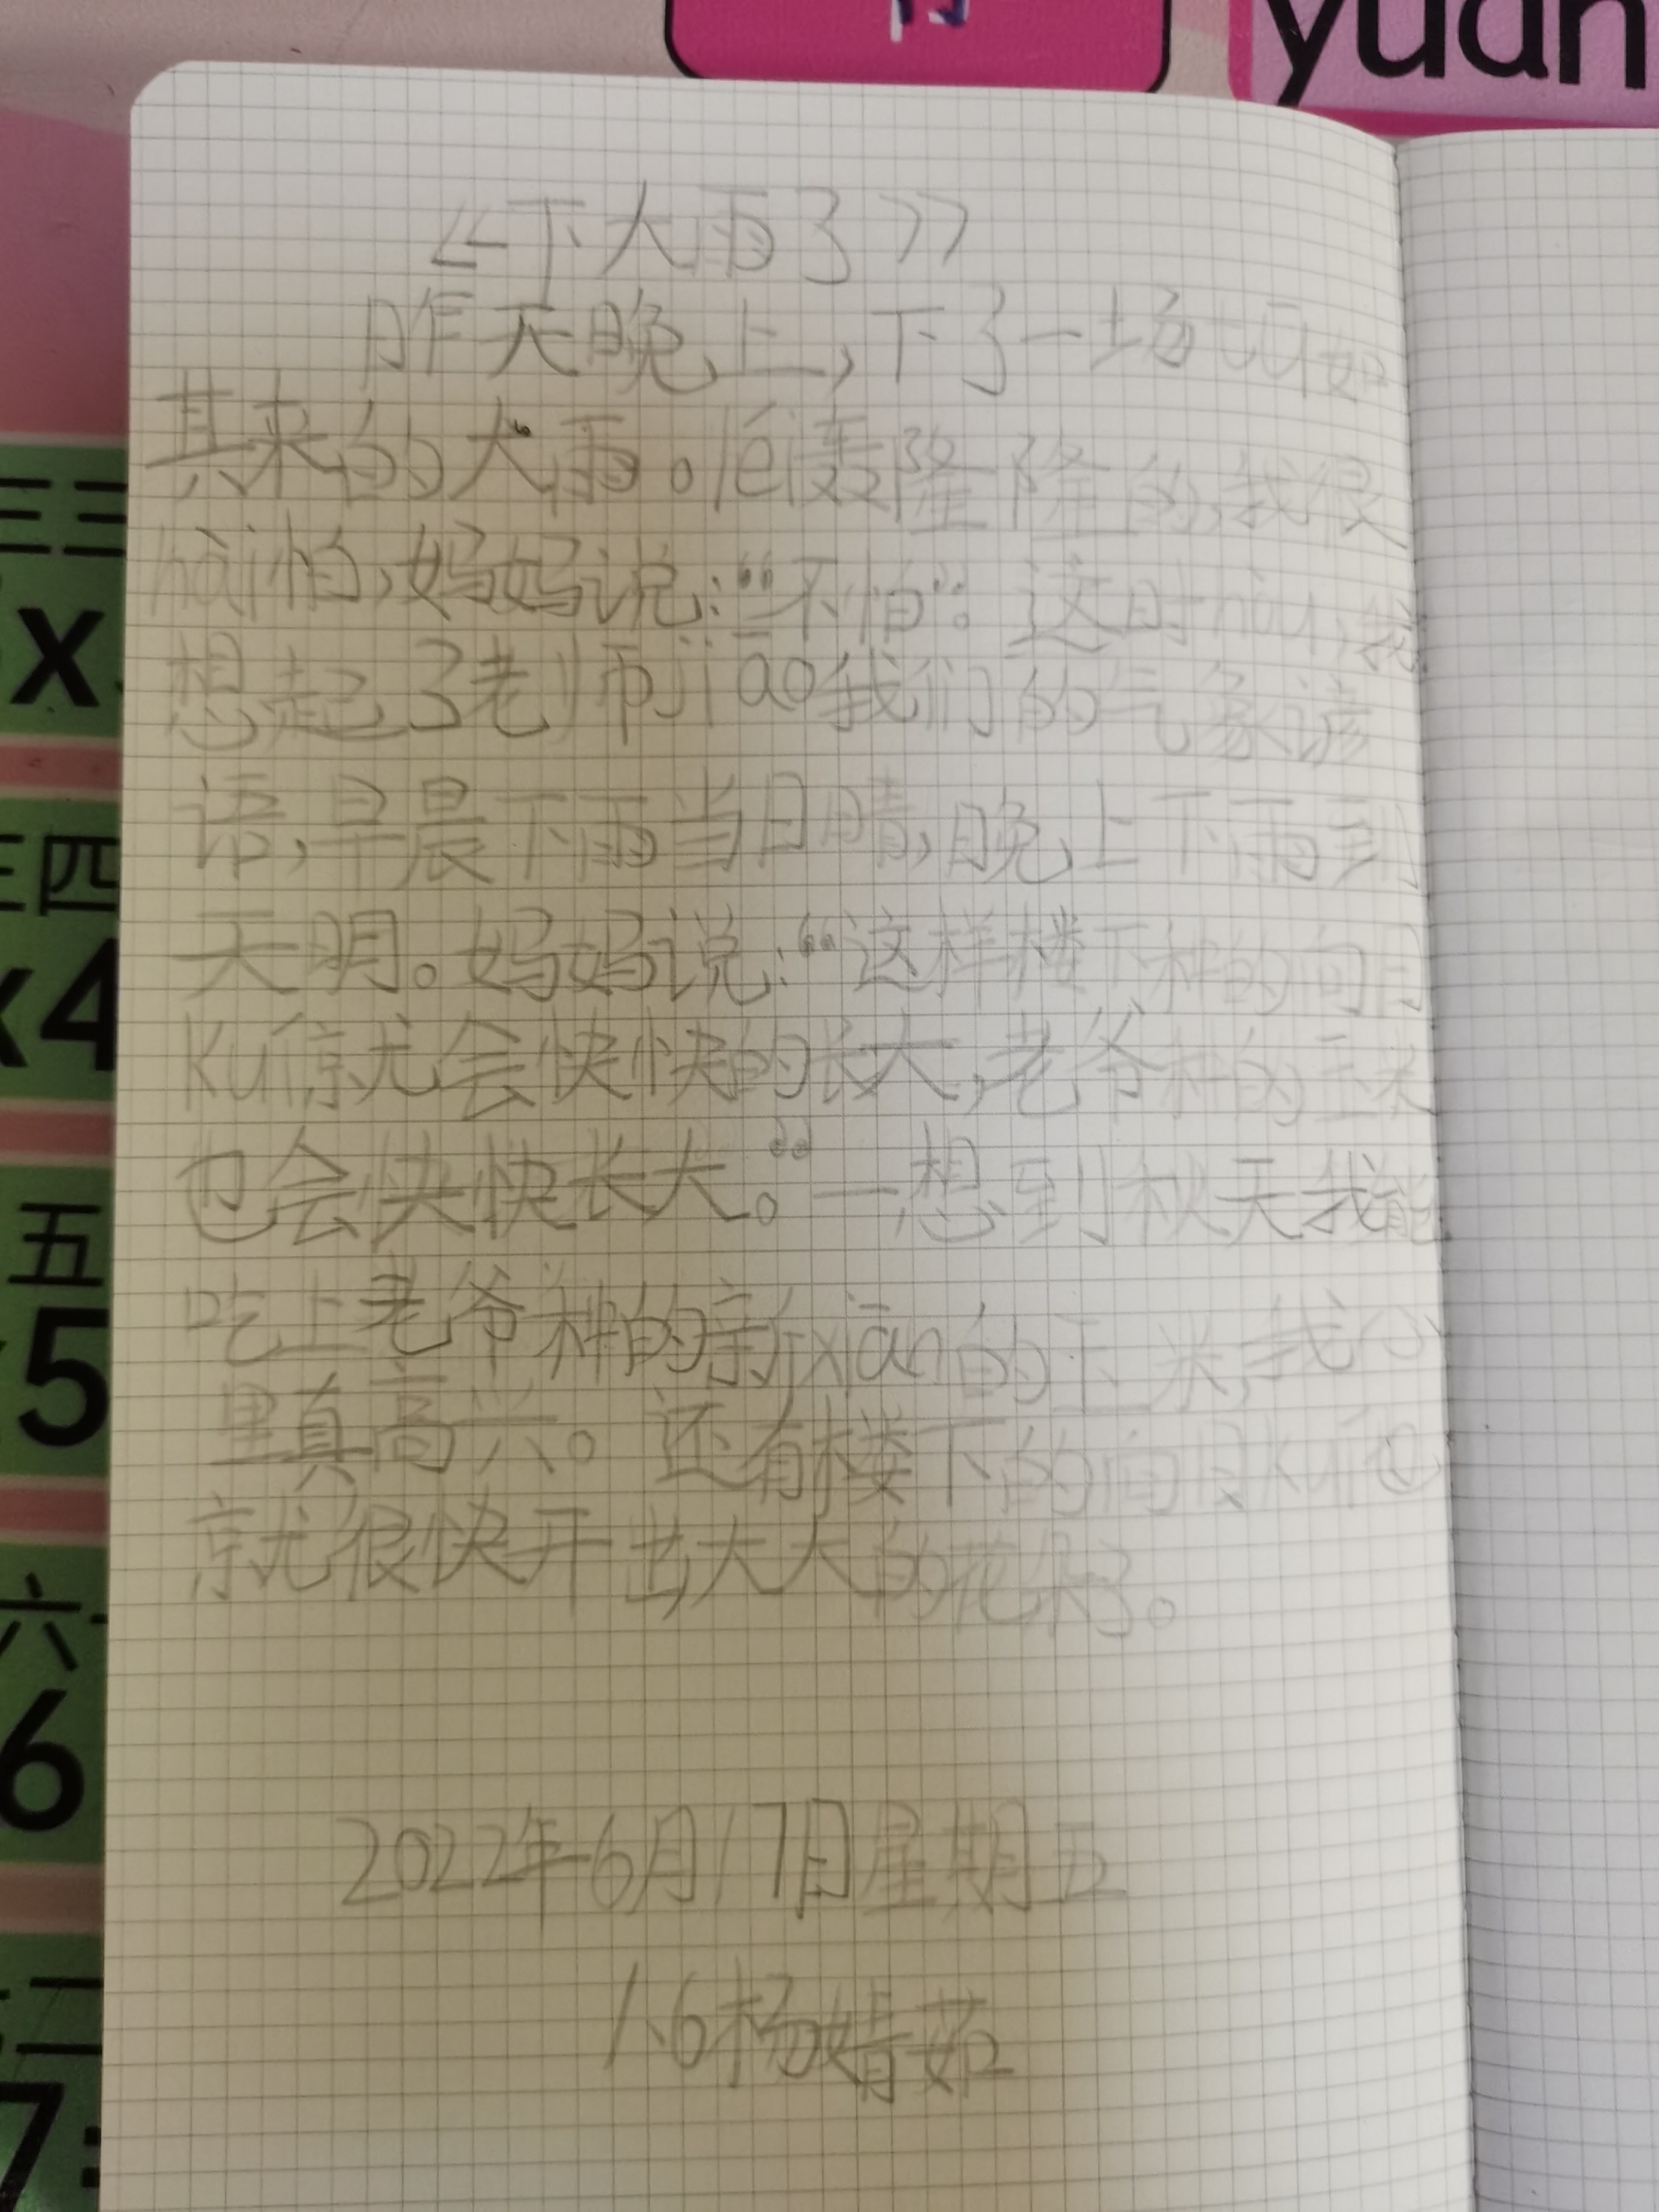 yuan
《下大雨了》
昨天晚上，下了一场tū如
其来的大雨。léi轰隆隆的，我很
hài怕，妈妈说：“不怕”。这时hòu，我
想起了老师jiāo我们的气象谚
语，早晨下雨当日晴，晚上下雨到
天明。妈妈说：“这样楼下种的向日
kuí就会快快的长大，老爷种的玉米
也会快快长大。”一想到秋天我能
吃上老爷种的新xiān的玉米，我心
里真高兴。还有楼下的向日kuí也
就很快开出大大的花朵了。
2022年6月17日星期五
1.6杨婧茹
x
四
x4
五
5
六
6
7